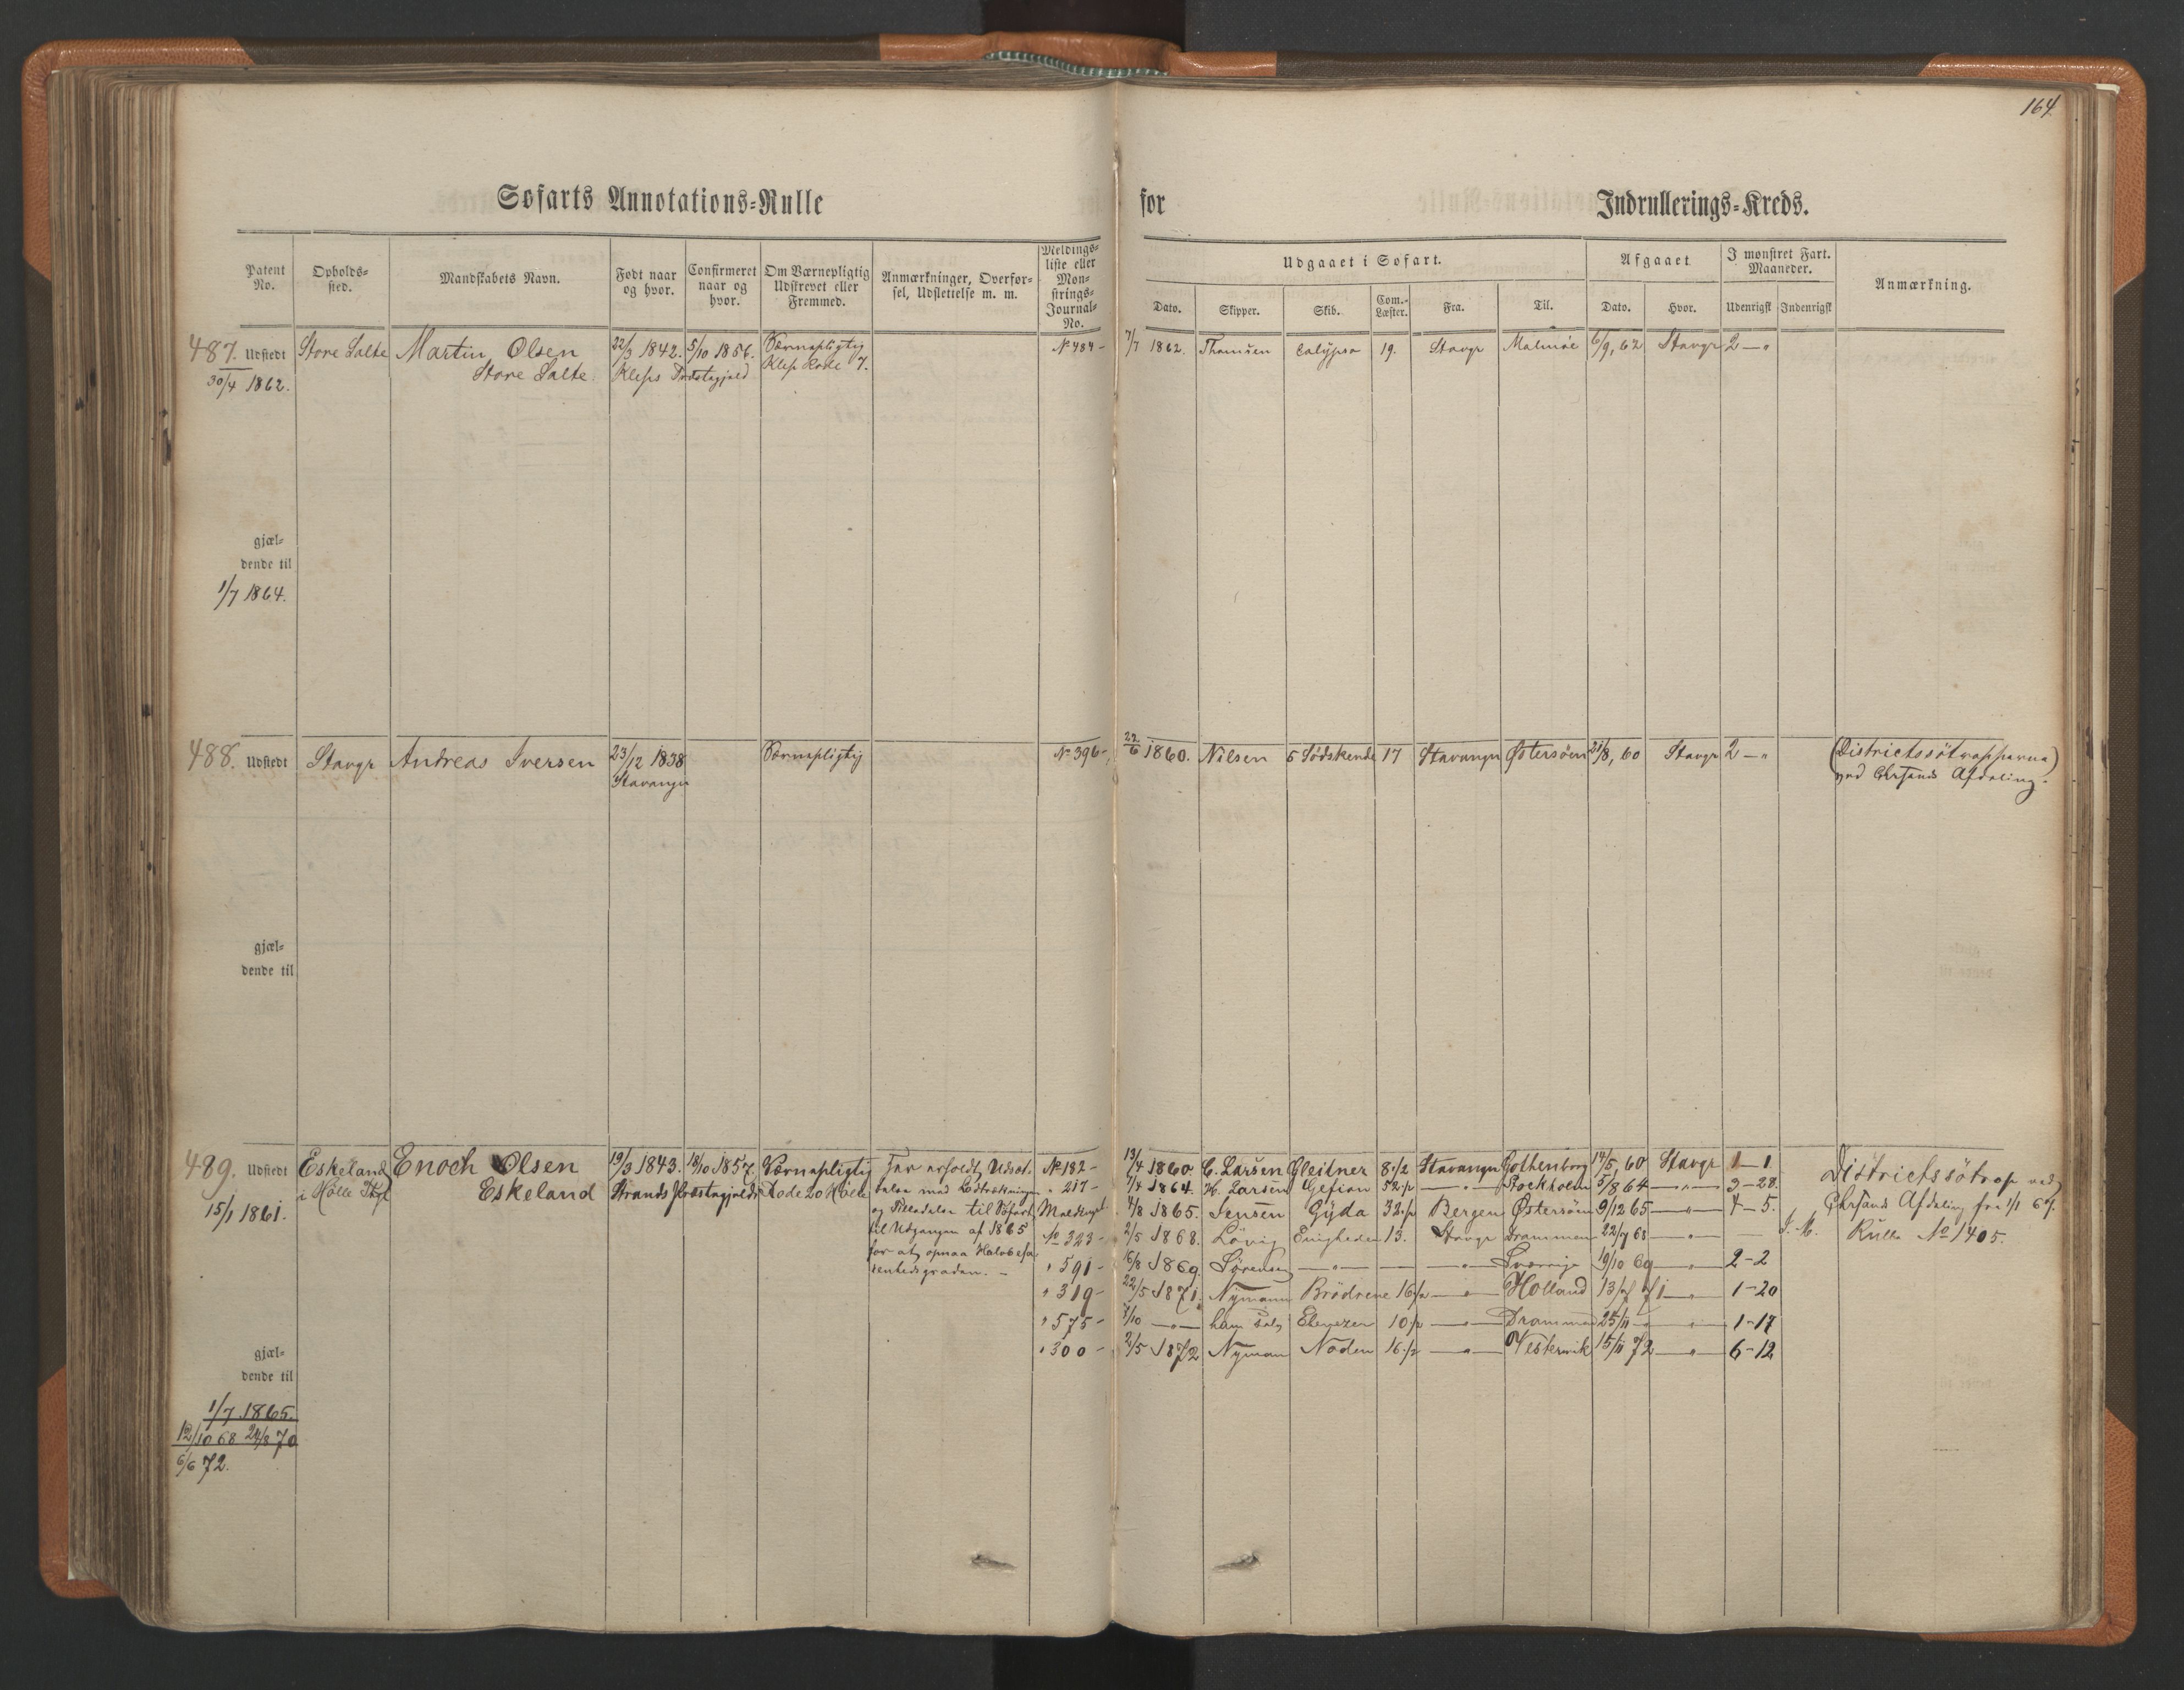 164.
Søfarts Annotations=Rulle for Indrullerings=Kreds.
Patent No. Opholds=sted. Mandskabets Navn. Født naar og hvor. Confirmeret naar og hvor. Om Værnepligtig Udskrevet eller Fremmed. Anmærkninger, Overførsel, Udslettelse m. m. Meldings=liste eller Mønstrings=Journal=No.
Udgaaet i Søfart. Afgaaet I mønstret Fart. Maaneder. Anmærkning.
Dato. Skipper. Skib. Com.=Læster. Fra. Til. Dato. Hvor. Udenrigsk Indenrigsk
487. Udstedt Store Salte Martin Olsen 22/3 1842. 5/10 1856. Værnepligtig N 484 - 7/7 1862. Thomsen Calypso 19. Stavgr Malmöe 6/9, 62 Stavgr 2 — "
30/4 1862. Store Salte. Kleps Præstegjæld Klep Rode 7.
gjæl=
dende til
1/7 1864.
488. Udstedt Stavgr Andreas Iversen 23/12 1838 Værnepligtig No 396 - 22/6 1860. Nilsen 5 Södskende 17 Stavanger Østersöen 21/8, 60 Stavgr 2 — " (Districtssötropperne)
Stavanger ved Chrsands Afdeling.
gjæl=
dende til
489. Udstedt Eskeland Enoch Olsen 19/3 1843. 18/10 1857. Værnepligtig Har erholdt Udsæt- No 182 - 13/4 1860 C. Larsen Gleitner 8 1/2 Stavanger Gothenborg 14/5, 60 Stavgr 1 — 1. Districtssötrop ved
i Hölle Eskeland Strands Præstegjæld Rode 20 Hölle telse med Udtrækningen " 217 - 7/4 1864. H. Larsen Gefion 52 1/2 — " — Stockholm 5/8 64 — " — 3 - 28. Chrsands Afdeling fra 1/1 67.
15/1 1861. og Tilladelse til Söfart 4/8 1865. Jensen Gyda 32 1/2 Bergen Østersöen 9/12 65 — " — 4 - 5.
til Udgangen af 1865 No 323 - 2/5 1868. Lövig Enigheden 13. Stavgr Drammen 22/7 68 — " — — Rulle No 1405.
for at opnaa Halvbefa- " 591 - 6/8 1869. Sørensen — " — — — " — Sverrige 19/10 69 — " — 2 - 2
renhedsgraden. — " 319 - 22/5 1871. Nymann Brödrene 16 1/2 — " — Holland 13/9 71 — " — 1 - 20
" 575 - 7/10 — " — ham selv Ebenezer 10 1/2 — " — Drammen 25/11 — " — 1 - 17
" 300 - 2/5 1872 Nyman Noden 16 1/2 — " — Vesterwik 15/11 72 — " — 6 - 12
gjæl=
dende til
1/7 1865.
12/10 68 24/8 70
6/6 72.